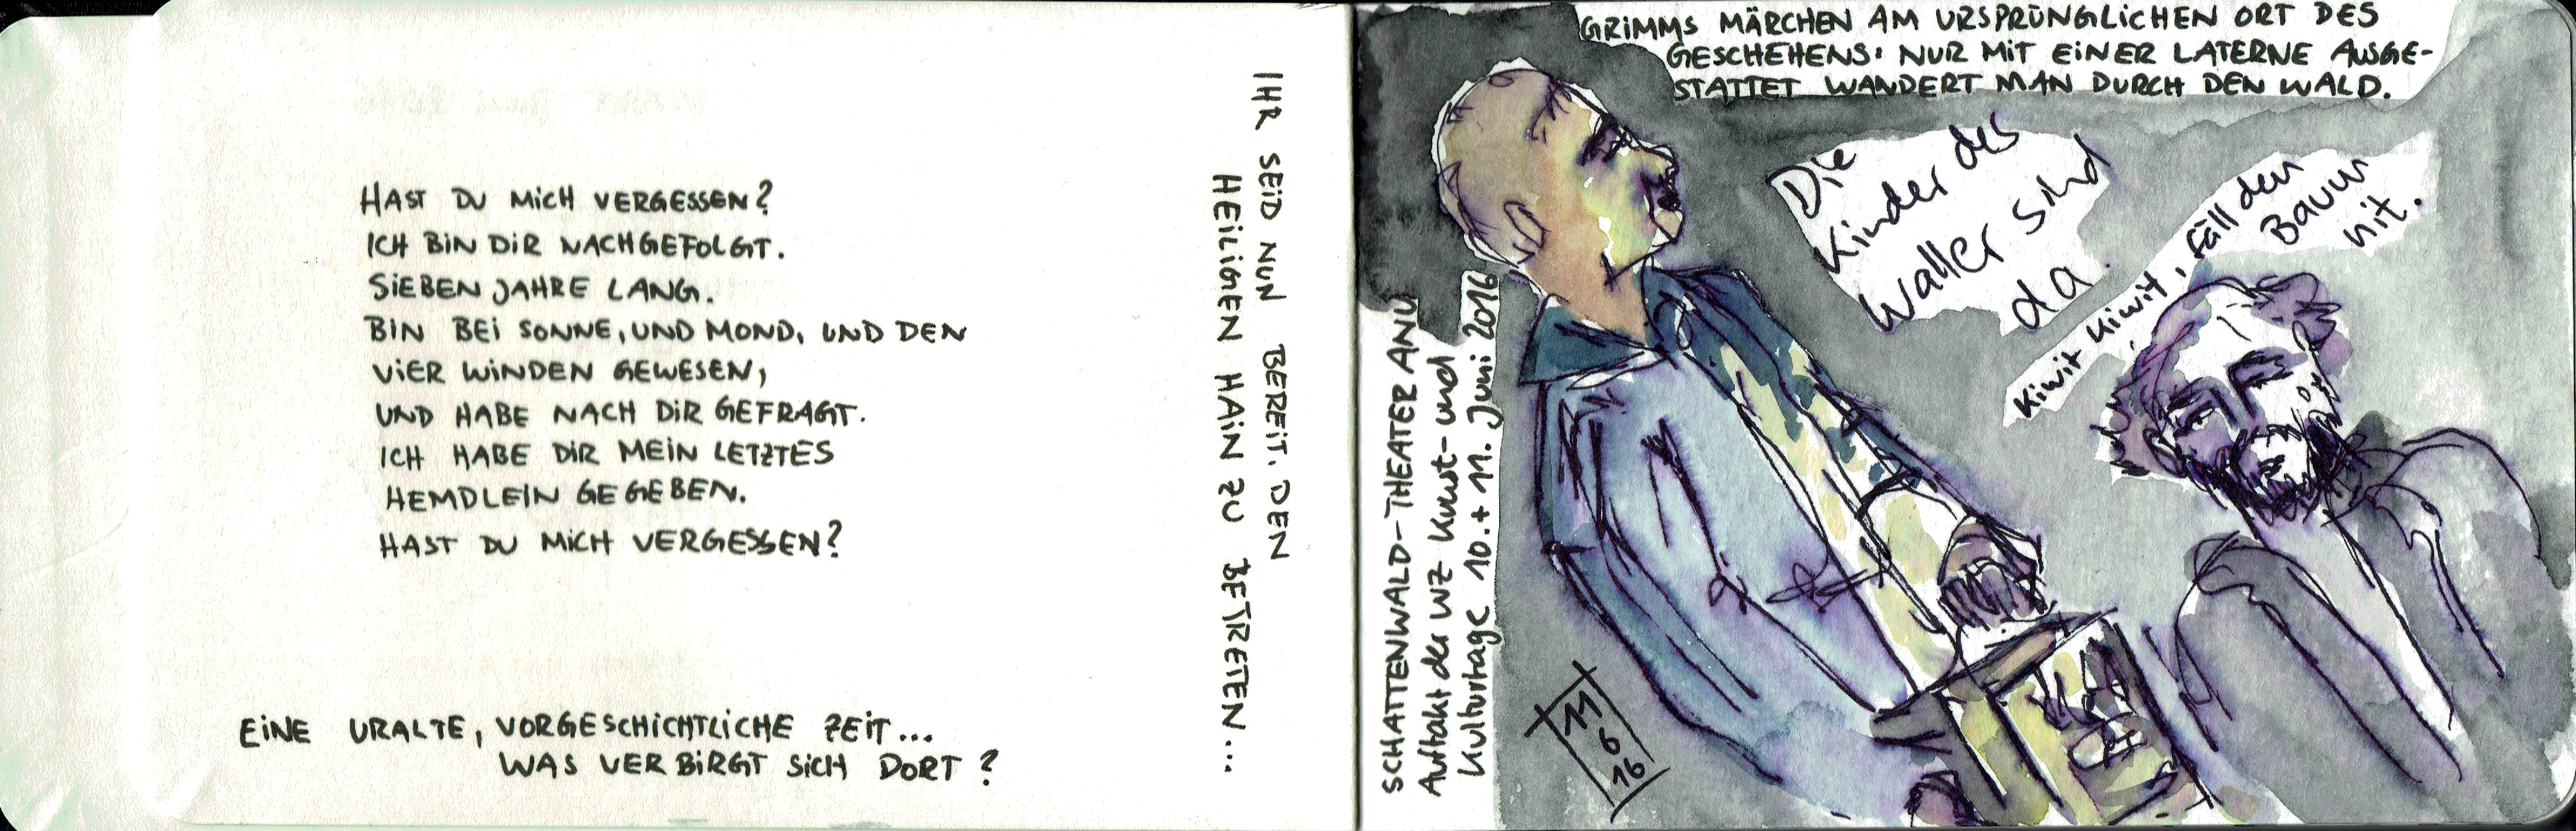 HAST DU MICH VERGESSEN?
ICH BIN DIR NACHGEFOLGT.
SIEBEN JAHRE LANG.
BIN BEI SONNE, UND MOND, UND DEN
VIER WINDEN GEWESEN,
UND HABE NACH DIR GEFRAGT.
ICH HABE DIR MEIN LETZTES
HEMDLEIN GEGEBEN.
HAST DU MICH VERGESSEN?
EINE URALTE, VORGESCHICHTLICHE ZEIT...
WAS VERBIRGT SICH DORT?
IHR SEID NUN BEREIT. DEN
HEILIGEN HAIN ZU BETRETEN...
GRIMMS MÄRCHEN AM URSPRÜNGLICHEN ORT DES
GESCHEHENS: NUR MIT EINER LATERNE AUSGE-
STATTET WANDERT MAN DURCH DEN WALD.
Die
Kinder des
Waller sind
da.
Kiwit Kiwit, Fäll den
Baum
nit.
SCHATTENWALD-THEATER ANU
Auftakt der WZ Kunst- und
Kulturtage 10.+ 11. Juni 2016
11
6
16